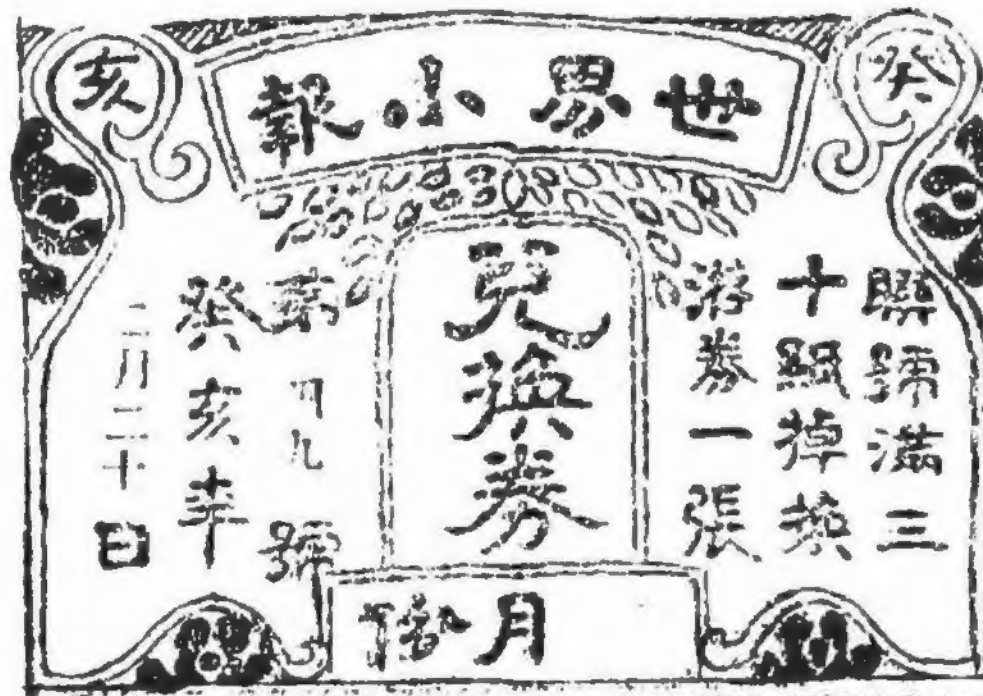 癸亥
世界小報
聯號滿三
十紙掉換
浴券一張
兌換券
第四九號
癸亥年
二月二十日
月